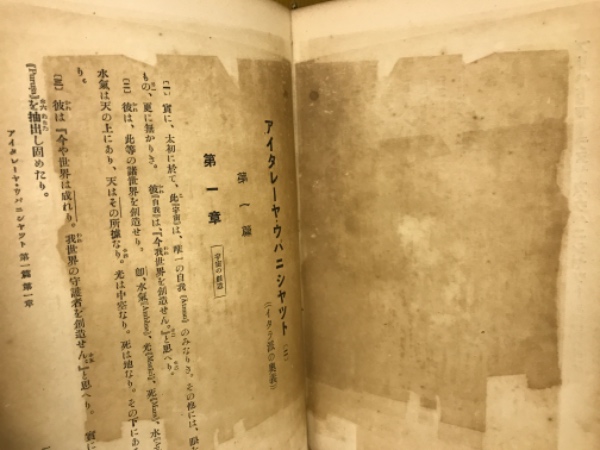 アイタレーヤ・ウパニシャット（一）
（イタラ派の奥義）
第一篇
第一章
宇宙の創造
〔一〕實に、太初に於て、此（宇宙）は、唯一の自我(Atman)のみなりき。その他には、
もの、更に無かりき。彼（自我）は、『今我世界を創造せん。』と思へり。
〔二〕彼は、此等の諸世界を創造せり。卽、水氣(Ambhas)、光(Marici)、死(Mara)、水
水氣は天の上にあり、天はその所據なり。光は中空なり。死は地なり。その下にあ
り。
〔三〕彼は『今や世界は成れり。我世界の守護者を創造せん。』と思へり。實に
『Purusa』を抽出し固めたり。
アイタレーヤ・ウパニシャット 第一篇第一章